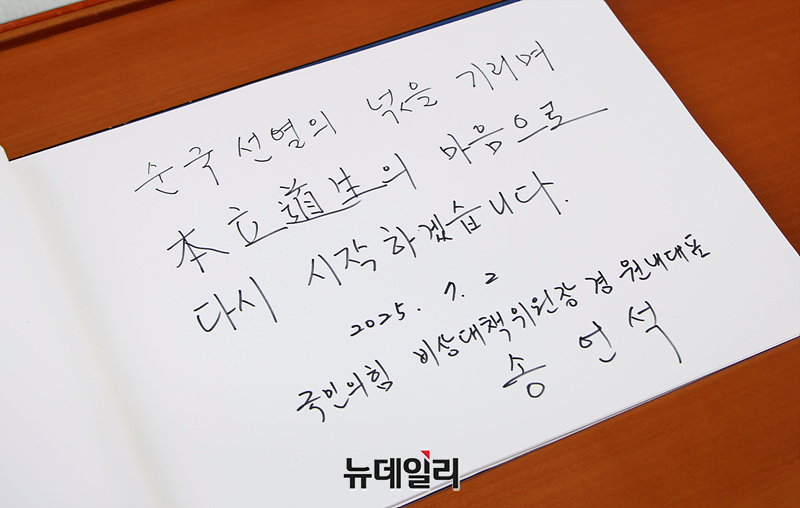 순국선열의 넋을 기리며
本立道生의 마음으로
다시 시작하겠습니다.
2025. 7. 2
국민의힘 비상대책위원장 겸 원내대표
송언석
뉴데일리